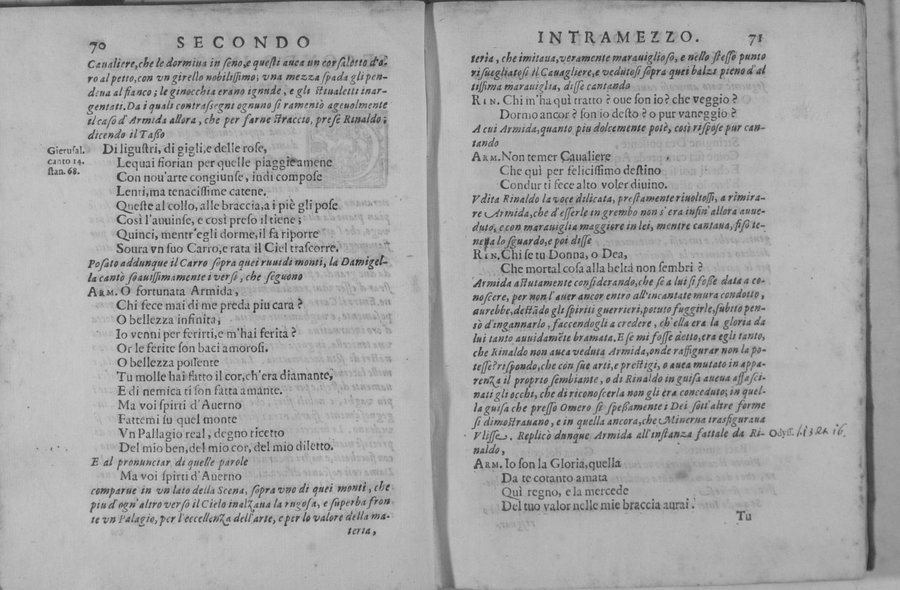 70 SECONDO
Caualiere, che le dormiua in seno, e questi auea un corsaletto d'o-
ro al petto, con vn girello nobilissimo; vna mezza spada gli pen-
deua al fianco; le ginocchia erano ignude, e gli stiualetti inar-
gentati. Da i quali contrasegni ognuno si ramentò ageuolmente
il caso d'Armida allora, che per farne straccio, prese Rinaldo;
dicendo il Tasso
Gierusal.
canto 14.
stan. 68.
Di ligustri, di gigli, e delle rose,
Lequai fiorian per quelle piaggie amene
Con nou'arte congiunse, indi compose
Lenti, ma tenacissime catene.
Queste al collo, alle braccia, a i piè gli pose
Così l'auuinse, e così preso il tiene;
Quinci, mentr'egli dorme, il fa riporte
Soura vn suo Carro, e rata il Ciel trascorre.
Posato addunque il Carro sopra quei ruuidi monti, la Damigel-
la cantò soauissimamente i versi, che seguono
ARM. O fortunata Armida,
Chi fece mai di me preda piu cara?
O bellezza infinita,
Io venni per ferirti, e m'hai ferita?
Or le ferite son baci amorosi.
O bellezza possente
Tu molle hai fatto il cor, ch'era diamante,
E di nemica ti son fatta amante.
Ma voi spirti d'Auerno
Fattemi su quel monte
Vn Pallagio real, degno ricetto
Del mio ben, del mio cor, del mio diletto.
E al pronunciar di quelle parole
Ma voi spirti d'Auerno
comparue in vn lato della Scena, sopra vno di quei monti, che
piu d'ogn'altro verso il Cielo inalzaua la rugosa, e superba fron
te vn Palagio, per l'eccellenza dell'arte, e per lo valore della ma-
teria,
INTRAMEZZO. 71
teria, che imitaua, veramente marauiglioso, e nello stesso punto
risuegliatosi il Cauagliere, e vedutosi sopra quei balzi pieno d'al
tissima marauiglia, disse cantando
RIN. Chi m'ha quì tratto? oue son io? che veggio?
Dormo ancor? son io desto? o pur vaneggio?
A cui Armida, quanto piu dolcemente potè, così rispose pur can-
tando
ARM. Non temer Caualiere
Che quì per felicissimo destino
Condurti fece alto voler diuino.
Vdita Rinaldo la voce dilicata, prestamente riuoltossi, a rimira-
re Armida, che d'esserle in grembo non s'era infin'allora auue-
duto, e con marauiglia maggiore in lei, mentre cantaua, fisso te-
nega lo sguardo, e poi disse
RIN. Chi se tu Donna, o Dea,
Che mortal cosa alla beltà non sembri?
Armida astutamente considerando, che se a lui si fosse data a co-
noscere, per non l'auer ancor entro all'incantate mura condotto,
aurebbe, destādo gli spiriti guerrieri, potuto fuggirle, subito pen-
sò d'ingannarlo, faccendogli a credere, ch'ella era la gloria da
lui tanto auuidamēte bramata. E se mi fosse detto, era egli tanto,
che Rinaldo non auea veduta Armida, onde raffigurar non la po-
tesse? rispondo, che con sue arti, e prestigi, o auea mutato in appa-
renza il proprio sembiante, o di Rinaldo in guisa aueua affasci-
nati gli occhi, che di riconoscerla non gli era conceduto; in quel-
la guisa che presso Omero sì speßamente i Dei sott'altre forme
si dimostrauano, e in quella ancora, che Minerua trasfiguraua
Vlisse. Replicò dunque Armida all'instanza fattale da Ri-
naldo,
Odyss. 16.
ARM. Io son la Gloria, quella
Da te cotanto amata
Quì regno, e la mercede
Del tuo valor nelle mie braccia aurai.
Tu